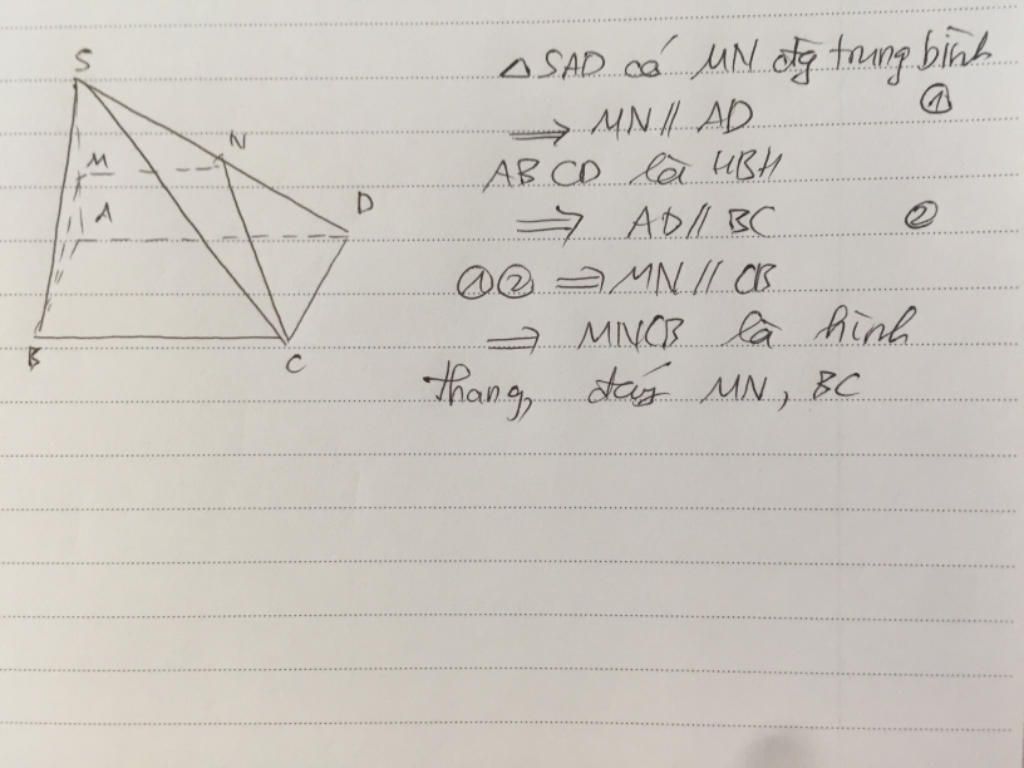 S
M
N
A
D
B
C
△SAD có MN đg trung bình
⟹ MN // AD ①
ABCD là HBH
⟹ AD // BC ②
①② ⟹ MN // CB
⟹ MNCB là hình
thang, đáy MN, BC